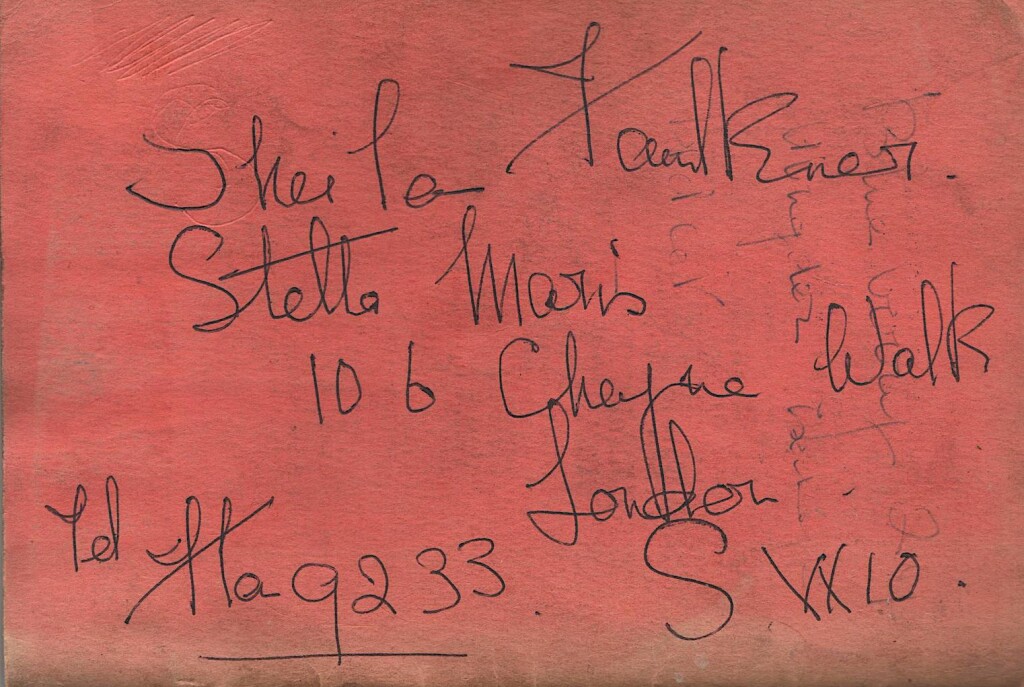 Sheila Faulkner.
Stella Maris
106 Cheyne Walk
London
SW10.
Tel Fla 9233.